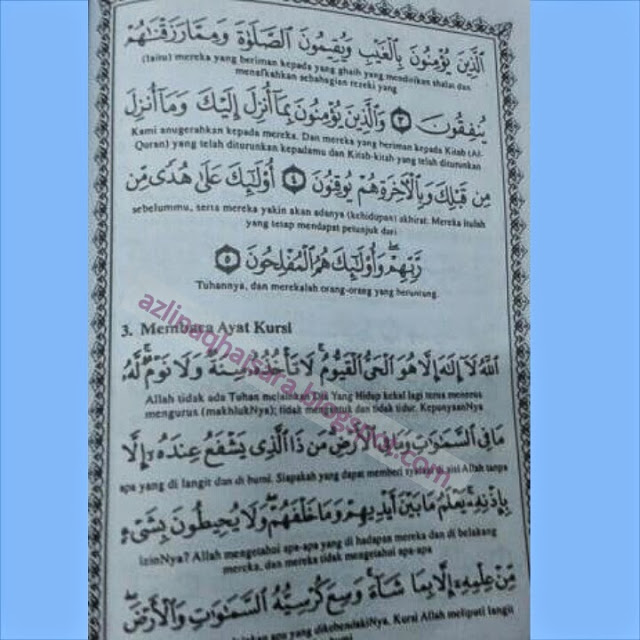 الَّذِينَ يُؤْمِنُونَ بِالْغَيْبِ وَيُقِيمُونَ الصَّلٰوةَ وَمِمَّا رَزَقْنٰهُمْ
(Iaitu) mereka yang beriman kepada yang ghaib yang mendirikan shalat dan
menafkahkan sebahagian rezeki yang
يُنْفِقُونَ ﴿٣﴾ وَالَّذِينَ يُؤْمِنُونَ بِمَا أُنْزِلَ إِلَيْكَ وَمَا أُنْزِلَ
Kami anugerahkan kepada mereka. Dan mereka yang beriman kepada Kitab (Al-
Quran) yang telah diturunkan kepadamu dan Kitab-kitab yang telah diturunkan
مِنْ قَبْلِكَ وَبِالْآخِرَةِ هُمْ يُوقِنُونَ ﴿٤﴾ أُولٰٓئِكَ عَلٰى هُدًى مِنْ
sebelummu, serta mereka yakin akan adanya (kehidupan) akhirat. Mereka itulah
yang tetap mendapat petunjuk dari
رَبِّهِمْ وَأُولٰٓئِكَ هُمُ الْمُفْلِحُونَ ﴿٥﴾
Tuhannya, dan merekalah orang-orang yang beruntung.
3. Membaca Ayat Kursi
اللّٰهُ لَا إِلٰهَ إِلَّا هُوَ الْحَيُّ الْقَيُّومُ لَا تَأْخُذُهُ سِنَةٌ وَلَا نَوْمٌ لَهُ
Allah tidak ada Tuhan melainkan Dia Yang Hidup kekal lagi terus menerus
mengurus (makhlukNya); tidak mengantuk dan tidak tidur. KepunyaanNya
مَا فِي السَّمٰوٰتِ وَمَا فِي الْأَرْضِ مَنْ ذَا الَّذِي يَشْفَعُ عِنْدَهُ إِلَّا
apa yang di langit dan di bumi. Siapakah yang dapat memberi di sisi Allah tanpa
بِإِذْنِهِ يَعْلَمُ مَا بَيْنَ أَيْدِيهِمْ وَمَا خَلْفَهُمْ وَلَا يُحِيطُونَ بِشَيْءٍ
izinNya? Allah mengetahui apa-apa yang di hadapan mereka dan di belakang
mereka, dan mereka tidak mengetahui apa-apa
مِنْ عِلْمِهِ إِلَّا بِمَا شَاءَ وَسِعَ كُرْسِيُّهُ السَّمٰوٰتِ وَالْأَرْضَ
apa yang dikehendakiNya. Kursi Allah meliputi langit